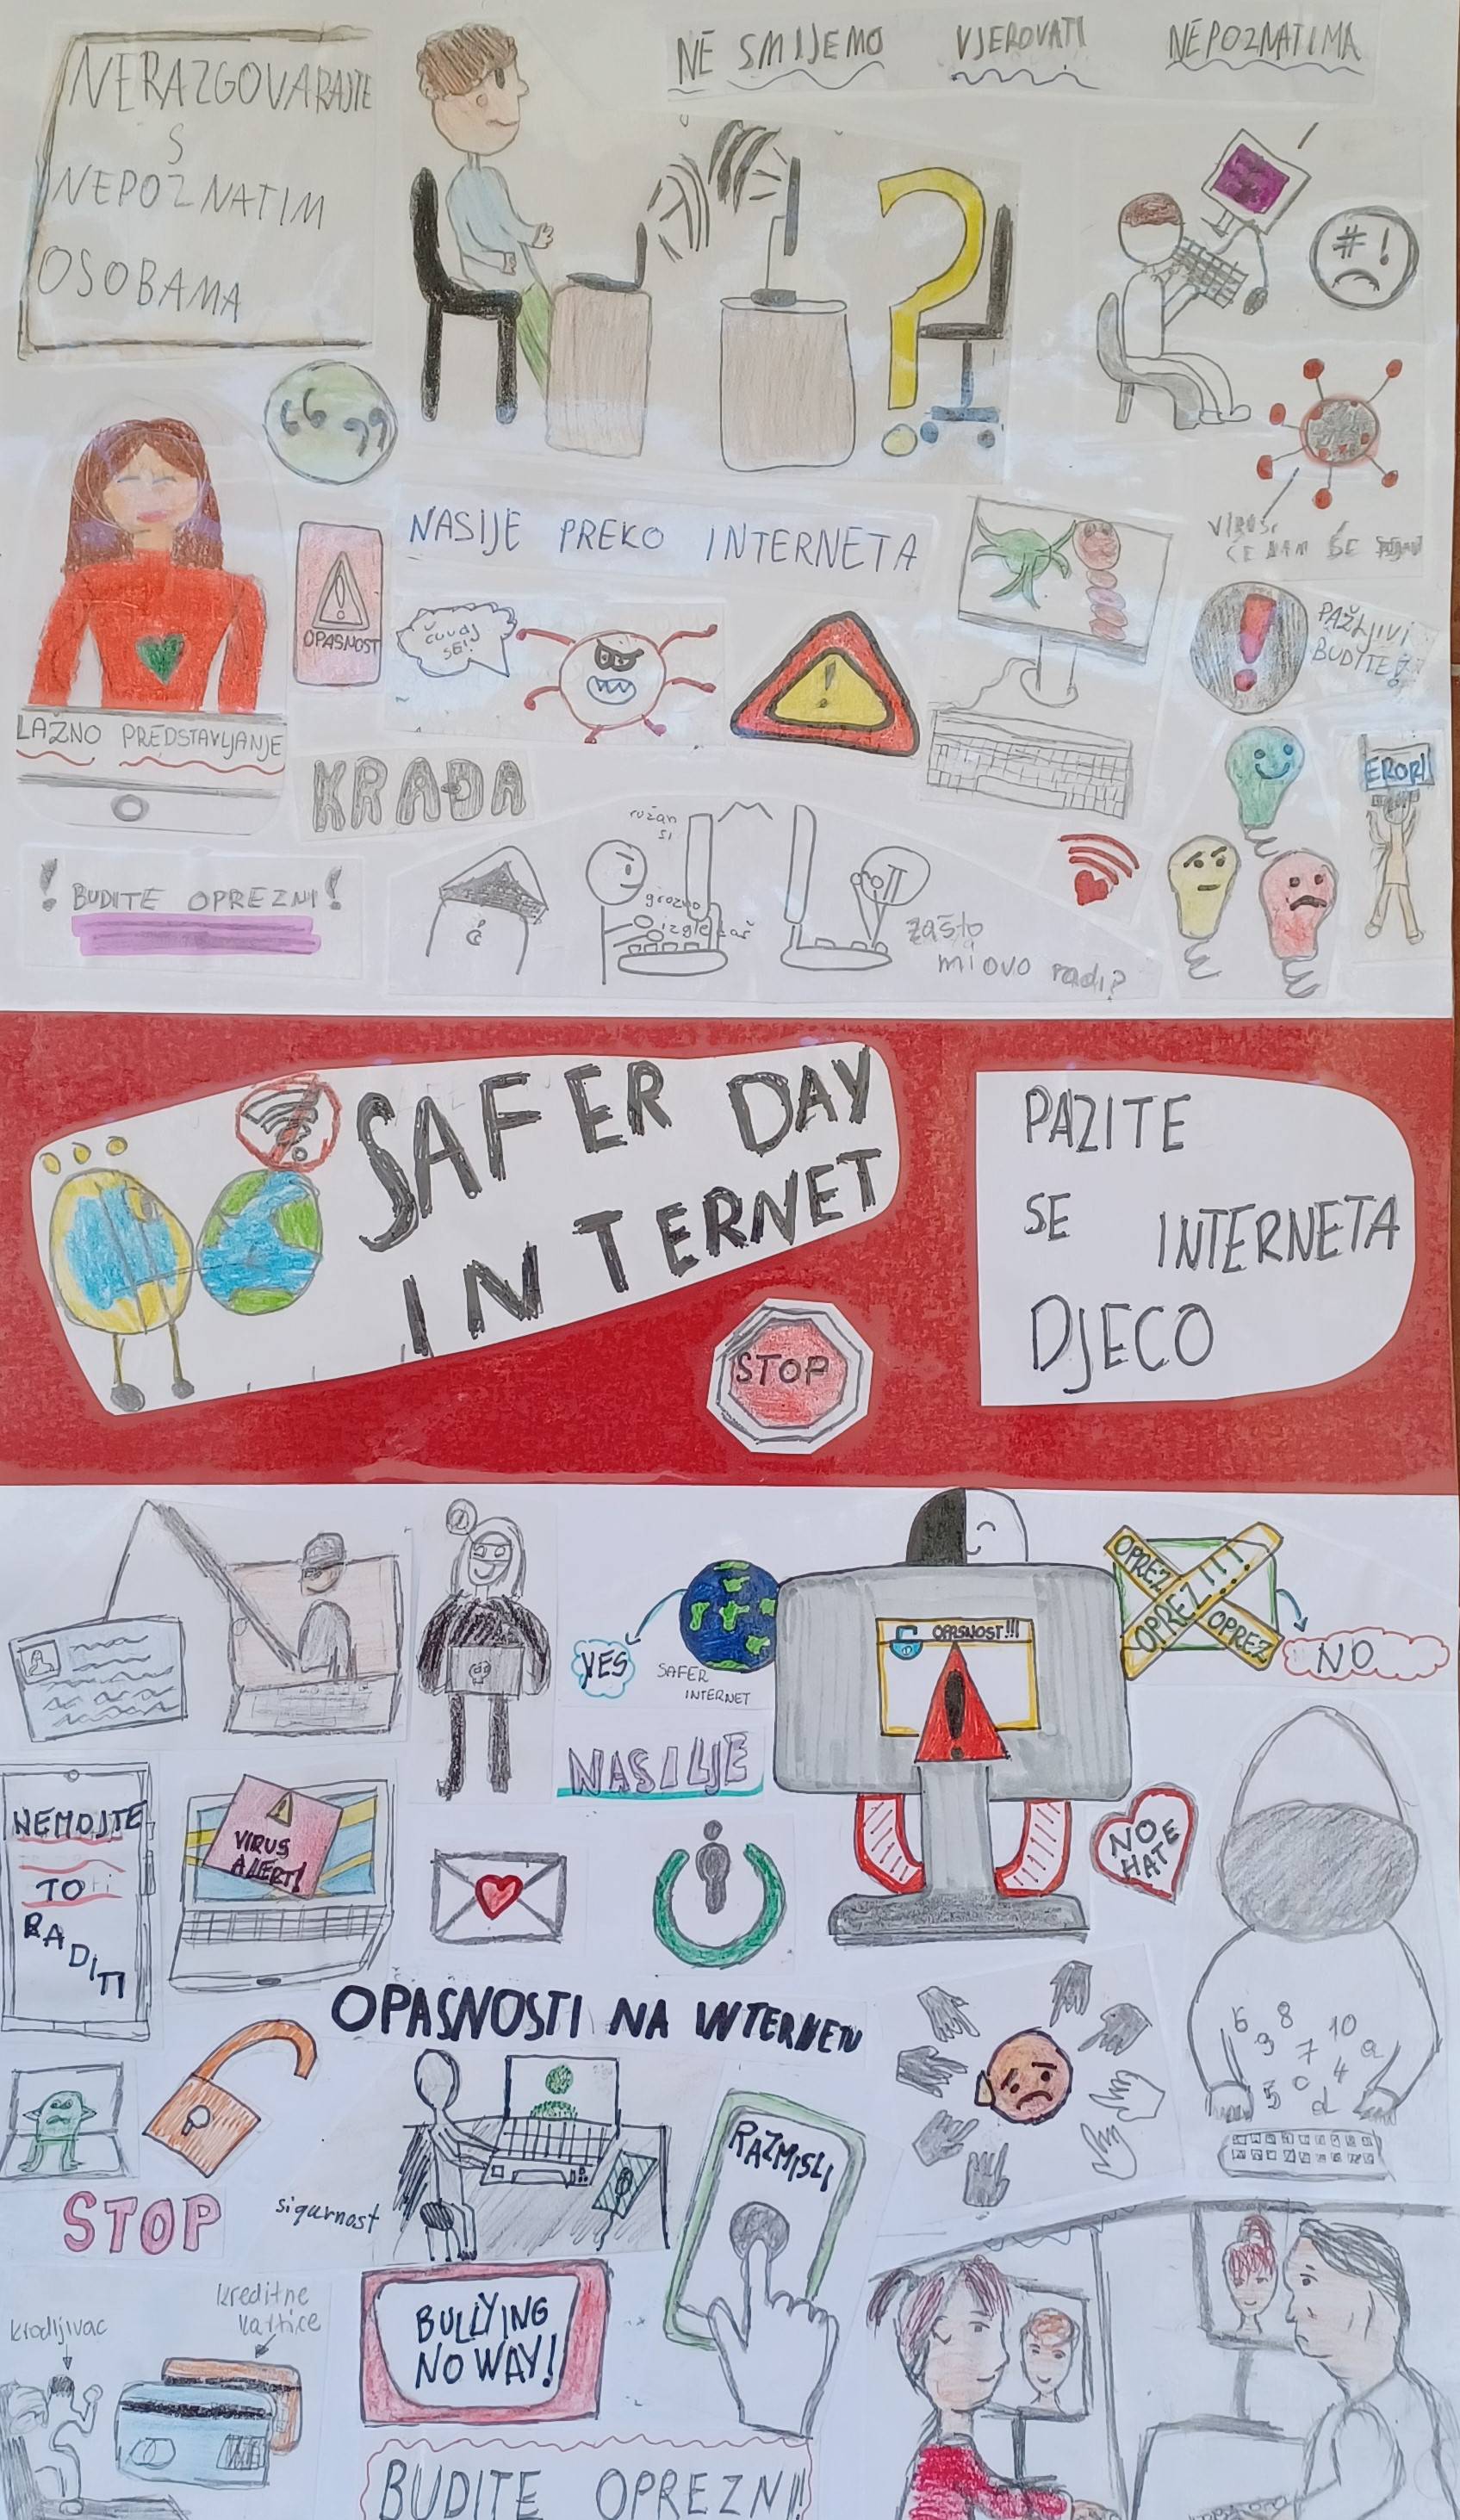 NERAZGOVARAJTE
S
NEPOZNATIM
OSOBAMA
NE SMIJEMO VJEROVATI NEPOZNATIMA
#!
NASIJE PREKO INTERNETA
VIRUSI
ĆE NAM SE
OPASNOST
ČUVAJ
SE!
!
PAŽLJIVI
BUDITE!
LAŽNO PREDSTAVLJANJE
KRAĐA
EROR!
! BUDITE OPREZNI !
ružan
si
grozno
izgledaš
zašto
mi ovo radi?
SAFER DAY
INTERNET
PAZITE
SE INTERNETA
DJECO
STOP
YES
SAFER
INTERNET
OPASNOST!!!
OPREZ
OPREZ!!!
OPREZ
NO
NASILJE
NEMOJTE
TO
RADITI
VIRUS
ALERT!
NO
HATE
OPASNOSTI NA INTERNETU
6 8 10
3 7 a
4
5 0 d
RAZMISLI
STOP
sigurnost
kreditne
kartice
kradljivac
BULLYING
NO WAY!
BUDITE OPREZNI!